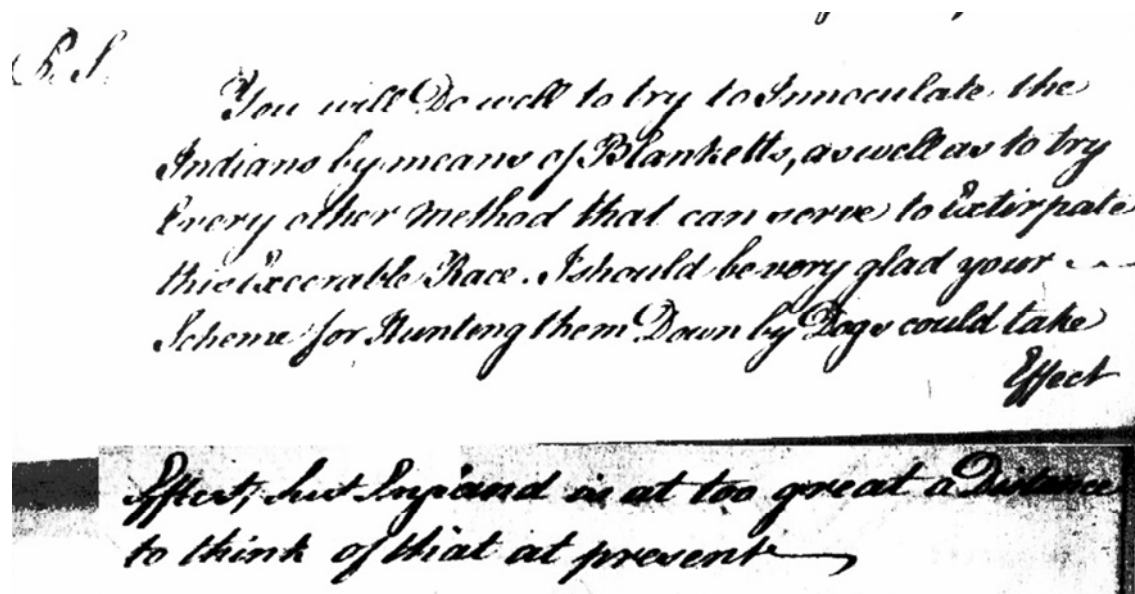 P.S.
You will Do well to try to Innoculate the
Indians by means of Blanketts, as well as to try
Every other method that can serve to Extirpate
this Execrable Race. I should be very glad your
Scheme for Hunting them Down by Dogs could take
Effect
Effect; but England is at too great a Distance
to think of that at present